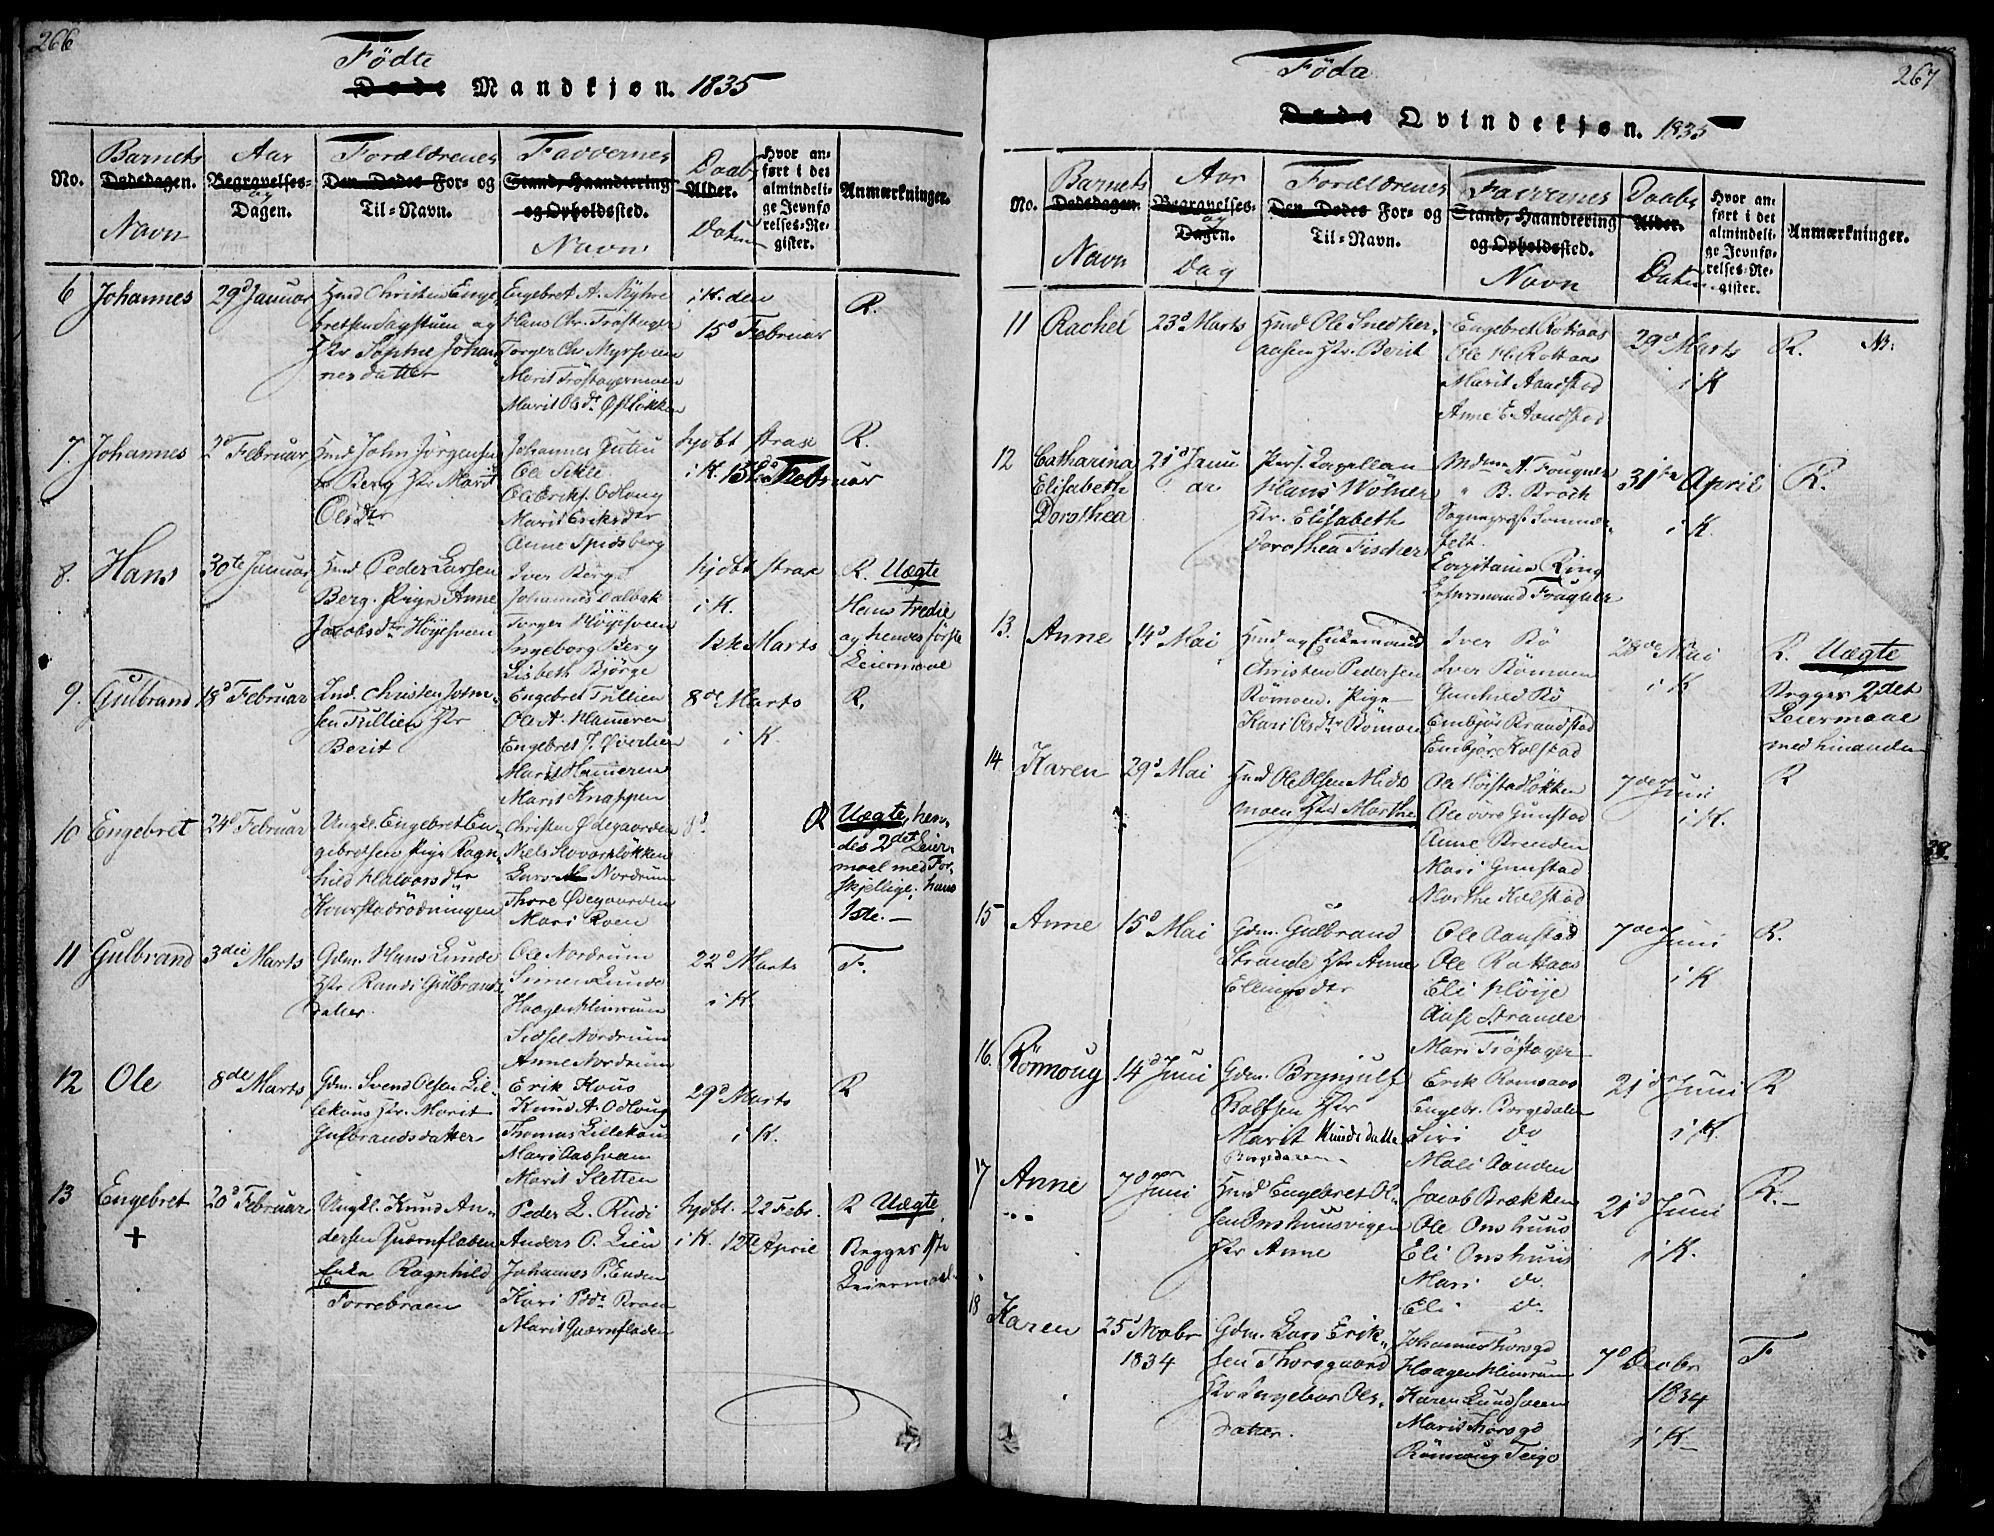 266
Födte
Døde Mandkjøn. 1835
No.
Barnets
Dødsdagen.
Navn
Aar
Begravelses-
og
Dagen.
Forældrenes
Den Dødes For- og
Til-Navn.
Faddernes
Stand, Haandtering
og Opholdssted.
Navn
Daabs
Alder.
Datum
Hvor an-
ført i det
almindeli-
ge Jevnfø-
relses-Re-
gister.
Anmærkninger.
6 Johannes 29d Januar
Hmd Christen Enge-
bretsen Dagstuen og
Hstr Sophie Johan
nesdatter
Engebret A. Myhre
Hans Chr. Tröstager
Torger Ch. Myrsveen
Marit Tröstagermoen
Marit Olsdr Ofslökken
i K. den
15d Februar
R.
7. Johannes 2d Februar
Hmd John Jörgensen
Berg Hstr Marit
Olsdtr
Johannes Gutu
Ole Sikle
Ole Erikt. Odloug
Marit Eriksdtr
Anne Spidsberg
hjdbt strax
i K. 15d Februar
R.
8. Hans 30te Januar
Hmd Peder Larsen
Berg. Pige Anne
Jacobsdtr Höyesveen
Iver Berge
Johannes Dalbak
Torger Höyesveen
Ingeborg Berg
Lisbeth Björge
hjdbt strax
i K.
1ste Marts
R. Uægte
Hans tredie
og hendes förste
Leiermaal
9. Gulbrand 18d Februar
Ind. Christen
sen Tullien Hstr
Berit
Engebret Tullien
Ole A. Hameren
Engebret J. Överlien
Marit Hameren
Marit Knappen
8de Marts
i K
R.
10 Engebret 24d Februar
Ungkl. Engebret En-
gebretsen Pige Ragn-
hild Halvorsdtr
Christen Ödegaarden
Niels Stovarplökken
Lars Nordrum
Thore Ödegaarden
Mari Roen
8d.
R Uægte, hen-
des 2det Leier-
maal med For-
skjellige; hans
1ste. —
11 Gulbrand 3die Marts
Gdm. Hans Lunde
Hstr Randi Gulbrands
datter.
Ole Nordrum
Simen Lunde
Haagen Klimrum
Sidsel Nordrum
Anne Nordrum
22d Marts
i K.
F.
12 Ole 8de Marts
Gdm. Svend Olsen Lil-
lekous Hstr. Marit
Gulbrandsdatter
Erik Kous
Knud A. Odloug
Thomas Lillekous
Mari Aassveen
Marit Sletten
29d Marts
i K.
R
13 Engebret 20d Februar
+
Ungkl. Knud An-
dersen Quærnfladen
Enke Ragnhild
Torrebraen
Peder L. Rudi
Anders O. Lien
Johannes P. Enden
Kari Pdr. Braen
Marit Quærnfladen
hjdbt. 22 Febr.
i K. 12te April
R Uægte
Begges 1ste
Leiermaal.
267
Föda
Døde Qvindekjøn. 1835
No.
Barnets
Dødsdagen.
Navn
Aar
Begravelses-
og
Dagen.
Dag
Forældrenes
Den Dødes For- og
Til-Navn.
Faddernes
Stand, Haandtering
og Opholdssted.
Navn
Daabs
Alder.
Datum
Hvor an-
ført i det
almindeli-
ge Jevnfø-
relses-Re-
gister.
Anmærkninger.
11 Rachel 23d Marts
Hmd Ole Snedker-
aasen Hstr. Berit
Engebret Rottaas
Ole H. Rottaas
Marit Aanstad
Anne E. Aanstad
29d Marts
i K
R.
12 Catharina
Elisabeth
Dorothea
21d Janu
ar
Pers. Capellan
Hans Wölner
Hstr. Elisabeth
Dorothea Fischer
Mdme A. Fougner
" B. Broch
Sognepræst Sommer-
felt.
Capitaine Ring
Lehnsmand Fougner
31te April
i K.
R.
13. Anne 14d Mai
Hmd og Enkemand
Christen Pedersen
Römoen. Pige
Kari Olsdtr Römoen
Iver Bö
Iver Römoen
Gunhild Bö
Embjör Brandstad
Embjör Kolstad
28de Mai
i K
R. Uægte
Begges 2det
Leiermaal
med hinanden
14 Karen 29d Mai
Hmd Ole Olsen Mids
moen Hstr Marthe
Ole Höistadlökken
Ole övre Gunstad
Anne Brenden
Mari Gunstad
Marthe Kolstad
7de Juni
i K.
R
15 Anne 15d Mai
Gdm. Gulbrand
Strande Hstr Anne
Clemetsdtr
Ole Aanstad
Ole Rottaas
Eli Höije
Aase Strande
Mari Tröstager
7de Juni
i K
R.
16. Römoug 14d Juni
Gdm. Brynjulf
Rolfsen Hstr
Marit Knudsdatter
Borgedalen
Erik Romsaas
Engebr. Borgedalen
Siri do
Mali Aanden
21d Juni
i K.
R
17 Anne 7de Juni
Hmd Engebret Ol-
sen Onshuusvigen
Hstr Anne
Jacob Brækken
Ole Onshuus
Eli Onshuus
Mari do.
Eli do
21d Juni
i K.
R.-
18 Karen 25d Novbr
1834
Gdm. Lars Erik-
sen Thorsgaard
Hstr Ingebor Ols-
datter.
Johannes Thorsgd
Haagen Klimrum
Karen Lundsveen
Marit Thorsgd
Römoug Teige
7d Decbr
1834
i K-
F